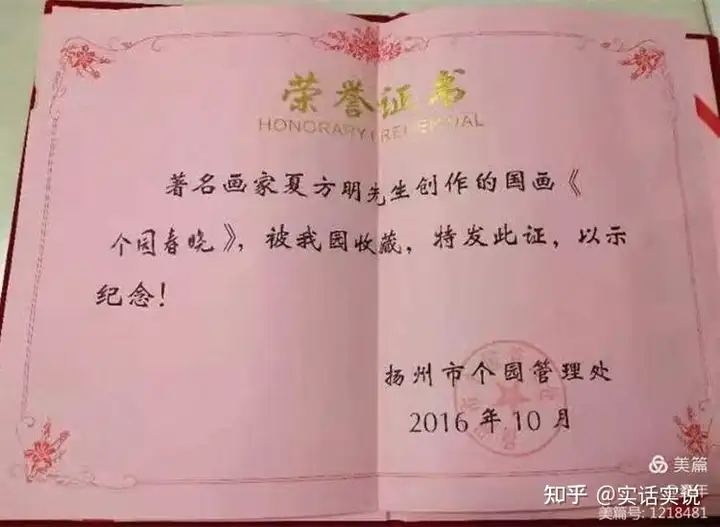 荣誉证书
HONORARY CREDENTIAL
著名画家夏方明先生创作的国画《
个园春晚》，被我园收藏，特发此证，以示
纪念！
扬州市个园管理处
2016 年 10 月
美篇
知乎 @实话实说
美篇号: 1218481